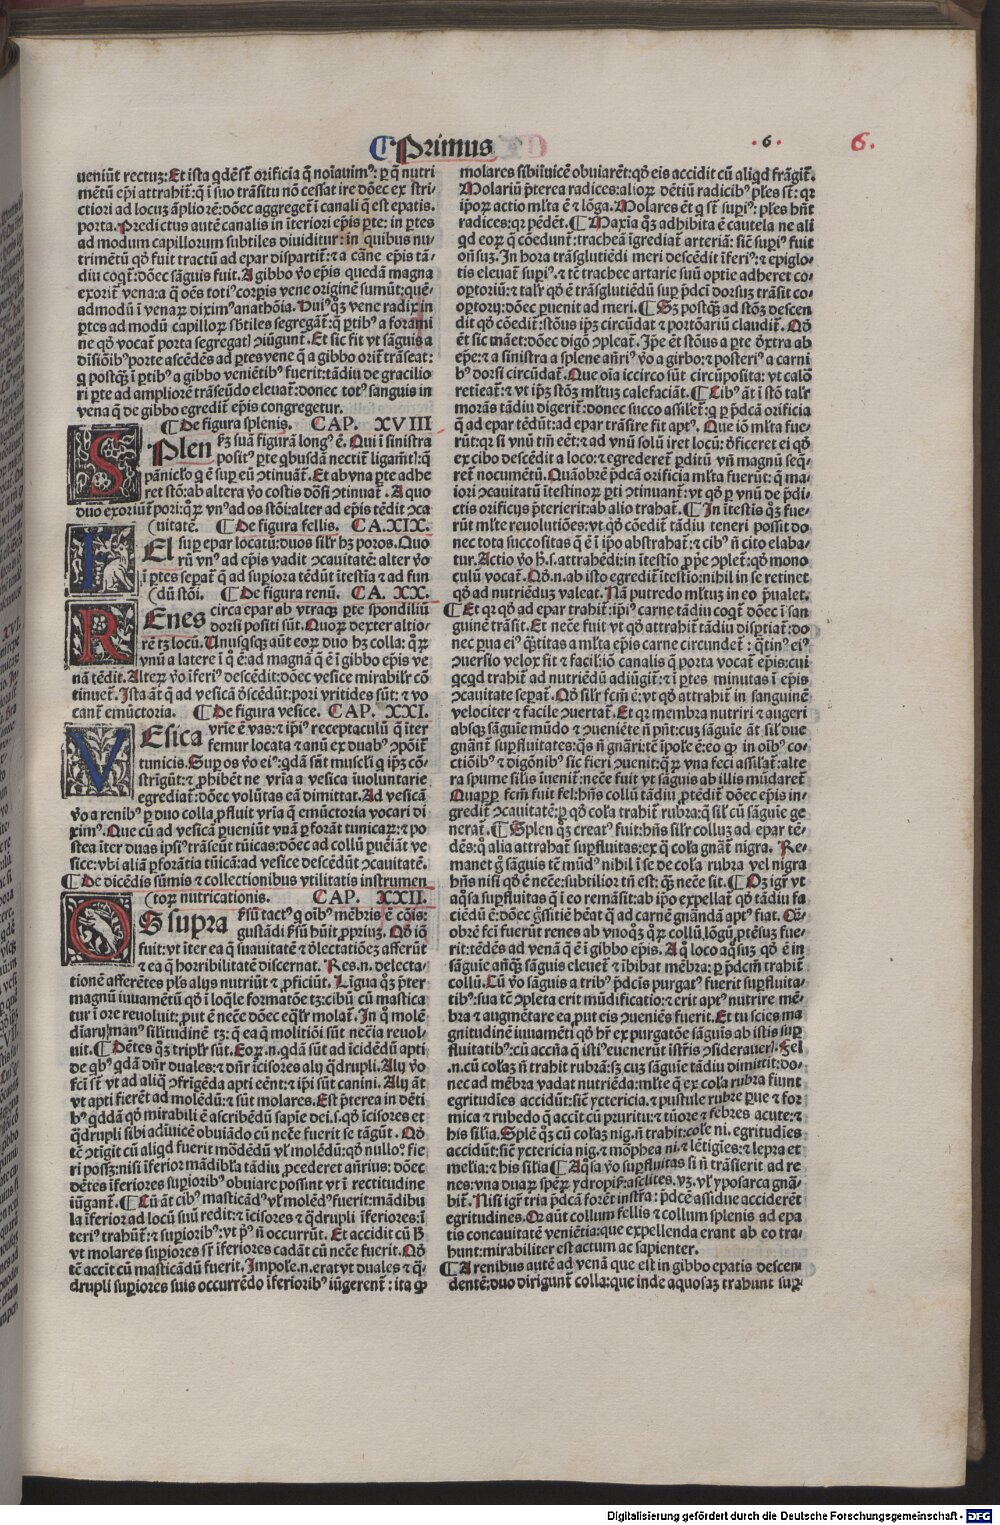 Primus
.6.
6.
ueniūt rectuz: Et ista qdēst orificia q noīauimꝰ: ꝑ q nutri
mētū epī attrahit: q i suo trāsitu nō cessat ire dōec ex stri/
ctiori ad locuz āpliorē: dōec aggreget i canali q est epatis.
porta. Predictus autē canalis in īteriori epīs ꝑte: in ꝑtes
ad modum capillorum subtiles diuiditur: in quibus nu/
trimētū qđ fuit tractū ad epar dispartit: ⁊ a cāne epīs tā/
diu coqt: dōec sāguis fuit. A gibbo ꝟo epīs quedā magna
exorit vena: a q oēs totiꝰ corpis vene originē sumūt: quē/
admodū i venaꝝ diximꝰ anathōia. Huiꝰ qz vene radix in
ꝑtes ad modū capilloꝝ sbtiles segregāt: q ꝑtibꝰ a forami
ne qđ vocat porta segregat ꝯiūgunt. Et sic fit vt sāguis a
dīsiōibꝰ porte ascēdēs ad ꝑtes vene q a gibbo orit trāseat:
q postqz i ꝑtibꝰ a gibbo veniētibꝰ fuerit: tādiu de gracilio
ri ꝑte ad ampliorē trāseūdo eleuat: donec totꝰ sanguis in
vena q de gibbo egredit epīs congregetur.
¶ De figura splenis. CAP. XVIII
SPlen hz suā figurā longꝰ ē. Qui i sinistra
positꝰ ꝑte qbusdā nectit ligamt: q
pāniclo q ē sup eū ꝯtinuat. Et ab vna ꝑte adhe
ret stō: ab altera ꝟo costis dōsi ꝯtinuat. A quo
duo exoriūt pori: qꝝ vnꝰ ad os stōi: alter ad epīs tēdit ꝯca
(uitatē. ¶ De figura fellis. CA. XIX.
FEl sup epar locatū: duos silr hz poros. Quo
rū vnꝰ ad epīs vadit ꝯcauitatē: alter ꝟo
i ptes separt q ad supiora tēdūt itestia ⁊ ad fun
(dū stōi. ¶ De figura renū. CA. XX.
REnes circa epar ab vtraqz ꝑte spondiliū
dorsi positi sūt. Quoꝝ dexter altio/
rē tz locū. Vnusqsqz aūt eoꝝ duo hz colla: qꝝ
vnū a latere i q ē: ad magnā q ē i gibbo epīs ve
nā tēdit. Alterꝝ ꝟo iferiꝰ descēdit: dōec vesice mirabilr cō
tinuet. Ista āt q ad vesicā ꝺscēdūt: pori vritides sūt: ⁊ vo
cant emūctoria. ¶ De figura vesice. CAP. XXI.
VEsica vrīe ē vas: ⁊ ipiꝰ receptaculū q iter
femur locata ⁊ anū ex duabꝰ ꝯpōit
tunicis. Sup os ꝟo eiꝰ: qdā sūt muscli q ipz cō/
strīgūt: ⁊ ꝓhibēt ne vrīa a vesica iuoluntarie
egrediat: dōec volūtas eā dimittat. Ad vesicā
ꝟo a renibꝰ ꝑ duo colla ꝓfluit vria q emūctoria vocari di
ximꝰ. Que cū ad vesicā ꝑueniūt vnā ꝑforāt tunicaꝝ: ⁊ po
stea iter duas ipsiꝰ trāseūt tūicas: dōec ad collū ꝑuēiāt ve
sice: vbi aliā ꝑforātia tūicā: ad vesice descēdūt ꝯcauitatē.
¶ De dicēdis sūmis ⁊ collectionibus vtilitatis instrumen
(toꝝ nutricationis. CAP. XXII.
OS supra hsū tactꝰ q oībꝰ mēbris ē cōis:
gustādi hsū hūit ꝓpriuz. Qđ iō
fuit: vt iter ea q suauitatē ⁊ ꝺlectatiōez afferūt
⁊ ea q horribilitatē discernat. Res .n. delecta/
tionē afferētes pls alijs nutriūt ⁊ ꝓficiūt. Ligua qz pter
magnū iuuamētū qđ i loqle formatōe tz: cibū cū mastica
tur i ore reuoluit: put ē necē dōec eqlr molat. In q molē
diarijmanꝰ silitudinē tz: q ea q molitiōi sūt necīa reuol/
uit. ¶ Dētes qz triplr sūt. Eoꝝ .n. qdā sūt ad icidēdū apti
de qbꝰ qdā dnr duales: ⁊ dnr icisores alij qdrupli. Alij ꝟo
fci st vt ad aliq ꝯfrigēda apti eēnt: ⁊ ipi sūt canini. Alij āt
vt apti fierēt ad molēdū: ⁊ sūt molares. Est pterea in dēti
bꝰ qddā qđ mirabili ē ascribēdū sapie dei .s. qđ icisores et
qdrupli sibi adiuicē obuiādo cū necē fuerit se tāgūt. Qđ
tē ꝯtigit cū aliqd fuerit mōdēdū vl molēdū: qđ nulloꝰ fie
ri possz: nisi iferior mādibla tādiu ꝓcederet añriꝰ: dōec
dētes iferiores supioribꝰ obuiare possint vt i rectitudine
iūgant. ¶ Cū āt cibꝰ masticādꝰ vl molēdꝰ fuerit: mādibu
la iferior ad locū suū redit: ⁊ icisores ⁊ qdrupli iferiores: i
teriꝰ trahūt: ⁊ supioribꝰ: vt pꝰ n̄ occurrūt. Et accidit cū h
vt molares supiores sr iferiores cadāt cū necē fuerit. Qđ
tē accit cū masticādū fuerit. Impole .n. erat vt duales ⁊ q
drupli supiores suis occurrēdo iferioribꝰ iūgerent: ita qꝫ
molares sibiiuicē obuiarēt: qđ eis accidit cū aliqd frāgit.
Molariū pterea radices: alioꝝ dētiū radicibꝰ ples st: qr
ipoꝝ actio mlta ē ⁊ lōga. Molares ēt q st supiꝰ: ples hnt
radices: qr pēdēt. ¶ Maxia qz adhibita ē cautela ne ali
qd eoꝝ q cōedunt: tracheā igrediat arteriā: sic supiꝰ fuit
oñsuz. In hora trāsglutiēdi meri descēdit iferiꝰ: ⁊ epiglo/
tis eleuat supiꝰ. ⁊ tē trachee artarie suū optie adheret co/
optoriū: ⁊ talr qđ ē trāsglutiēdū sup pdci dorsuz trāsit co/
optorij: dōec ꝑuenit ad meri. ¶ Sz postqz ad stōz descen
dit qđ cōedit: stōus ipz circūdat ⁊ portōariū claudit. Qđ
ēt sic māet: dōec digō ꝯpleat. Ipe ēt stōus a ꝑte ꝺxtra ab
epe: ⁊ a sinistra a splene añriꝰ ꝟo a girbo: ⁊ posteriꝰ a carni
bꝰ dorsi circūdat. Que oīa iccirco sūt circūposita: vt calō
retieāt: ⁊ vt ipz stōz mltuz calefaciāt. ¶ Cibꝰ āt i stō talr
morās tādiu digerit: donec succo assilet: q ꝑ pdcā orificia
q ad epar tēdūt: ad epar trāsire fit aptꝰ. Que iō mlta fue/
rūt: qr si vnū tm eēt: ⁊ ad vnū solū iret locū: ꝺficeret ei qđ
ex cibo descēdit a loco: ⁊ egrederet ꝑditū vñ magnū seq/
ret nocumētū. Quāobrē pdcā orificia mlta fuerūt: q ma/
iori ꝯcauitatū itestinoꝝ ꝑti ꝯtinuant: vt qđ ꝑ vnū de pdi/
ctis orificijs pterierit: ab alio trahat. ¶ In itestis qz fue/
rūt mlte reuolutiōes: vt qđ cōedit tādiu teneri possit do/
nec tota succositas q ē i ipo abstrahat: ⁊ cibꝰ n̄ cito elaba/
tur. Actio ꝟo h .s. attrahēdi: in itestio ꝓpe ꝯplet: qđ mono
culū vocat. Qđ .n. ab isto egredit itestio: nihil in se retinet
qđ ad nutriēduz valeat. Nā putredo mltuz in eo pualet.
¶ Et qr qđ ad epar trahit: ipiꝰ carne tādiu coqt dōec i san
guinē trāsit. Et necē fuit vt qđ attrahit tādiu disptiat: do/
nec pua eiꝰ qtitas a mlta epīs carne circundet: qtinꝰ eiꝰ
ꝯuersio velox fit ⁊ facil: iō canalis q porta vocat epīs: cui
qcqd trahit ad nutriēdū adiūgit: ⁊ i ptes minutas i epīs
ꝯcauitate sepat. Qđ silr fcm ē: vt qđ attrahit in sanguinē
velociter ⁊ facile ꝯuertat. Et qr membra nutriri ⁊ augeri
absqz sāguie mūdo ⁊ ꝯueniēte n̄ pnt: cuz sāguie āt sil due
gnāt supfluitates: qs n̄ gnāri: tē ipole ē: eo qꝫ in oibꝰ co/
ctiōibꝰ ⁊ digōnibꝰ sic fieri ꝯuenit: qꝝ vna feci assilat: alte
ra spume silis iuenit: necē fuit vt sāguis ab illis mūdaret
Quapp fcm fuit fel: hñs collū tādiu ꝓtēdit dōec epīs in/
gredit ꝯcauitatē: ꝑ qđ cola trahit rubra: q sil cū sāguie ge
nerat. ¶ Splen qz creatꝰ fuit: hñs silr colluz ad epar tē/
dēs: q alia attrahat supfluitas: ex q cola gnāt nigra. Re/
manet g sāguis tē mūdꝰ nihil i se de cola rubra vel nigra
hñs nisi qđ ē necē: subtilior tn est: qz necē sit. ¶ Oz igr vt
aqsa supfluitas q i eo remāsit: ab ipo expellat qđ tādiu fa
ciēdū ē: dōec gssitiē hēat q ad carnē gnādā aptꝰ fiat. Qā/
obrē fci fuerūt renes ab vnoqz qꝝ collū lōgū ptēsuz fue/
rit: tēdēs ad venā q ē i gibbo epīs. A q loco aqsuz qđ ē in
sāguie añqz sāguis eleuet ⁊ ibibat mēbra: ꝑ pdcm trahit
collū. Cū ꝟo sāguis a tribꝰ pdcis purgatꝰ fuerit supfluita/
tibꝰ: sua tē ꝯpleta erit mūdificatio: ⁊ erit aptꝰ nutrire mē/
bra ⁊ augmētare ea put eis ꝯueniēs fuerit. Et tu scies ma
gnitudinē iuuamēti qđ hr ex purgatōe sāguis ab istis sup
fluitatibꝰ: cū accña q istiꝰ euenerūt istris ꝯsideraueris. Fel
.n. cū colaz n̄ trahit rubrā: sz cuz sāguie tādiu dimittit: do/
nec ad mēbra vadat nutriēda: mlte q ex cola rubra fiunt
egritudies accidūt: sic yctericia. ⁊ pustule rubre pue ⁊ for
mica ⁊ rubedo q accit cū pruritu: ⁊ tuōre ⁊ febres acute: ⁊
his silia. Splē qz cū colaz nig. n̄ trahit: cole ni. egritudies
accidūt: sic yctericia nig. ⁊ mōphea ni. ⁊ lētigies: ⁊ lepra et
melia: ⁊ his silia ¶ Aqsa ꝟo supfluitas si n̄ trāsierit ad re
nes: vna duaꝝ speꝝ ydropis: asclites .vz. vl yposarca gnā/
bit. Nisi igr tria pdcā forēt instra: pdcē assidue acciderēt
egritudines. Or aūt collum fellis ⁊ collum splenis ad epa
tis concauitatē veniētia: que expellenda erant ab eo tra/
hunt: mirabiliter est actum ac sapienter.
¶ A renibus autē ad venā que est in gibbo epatis descen
dentē: duo dirigunt colla: que inde aquosaz trahunt sup
Digitalisierung gefördert durch die Deutsche Forschungsgemeinschaft - DFG